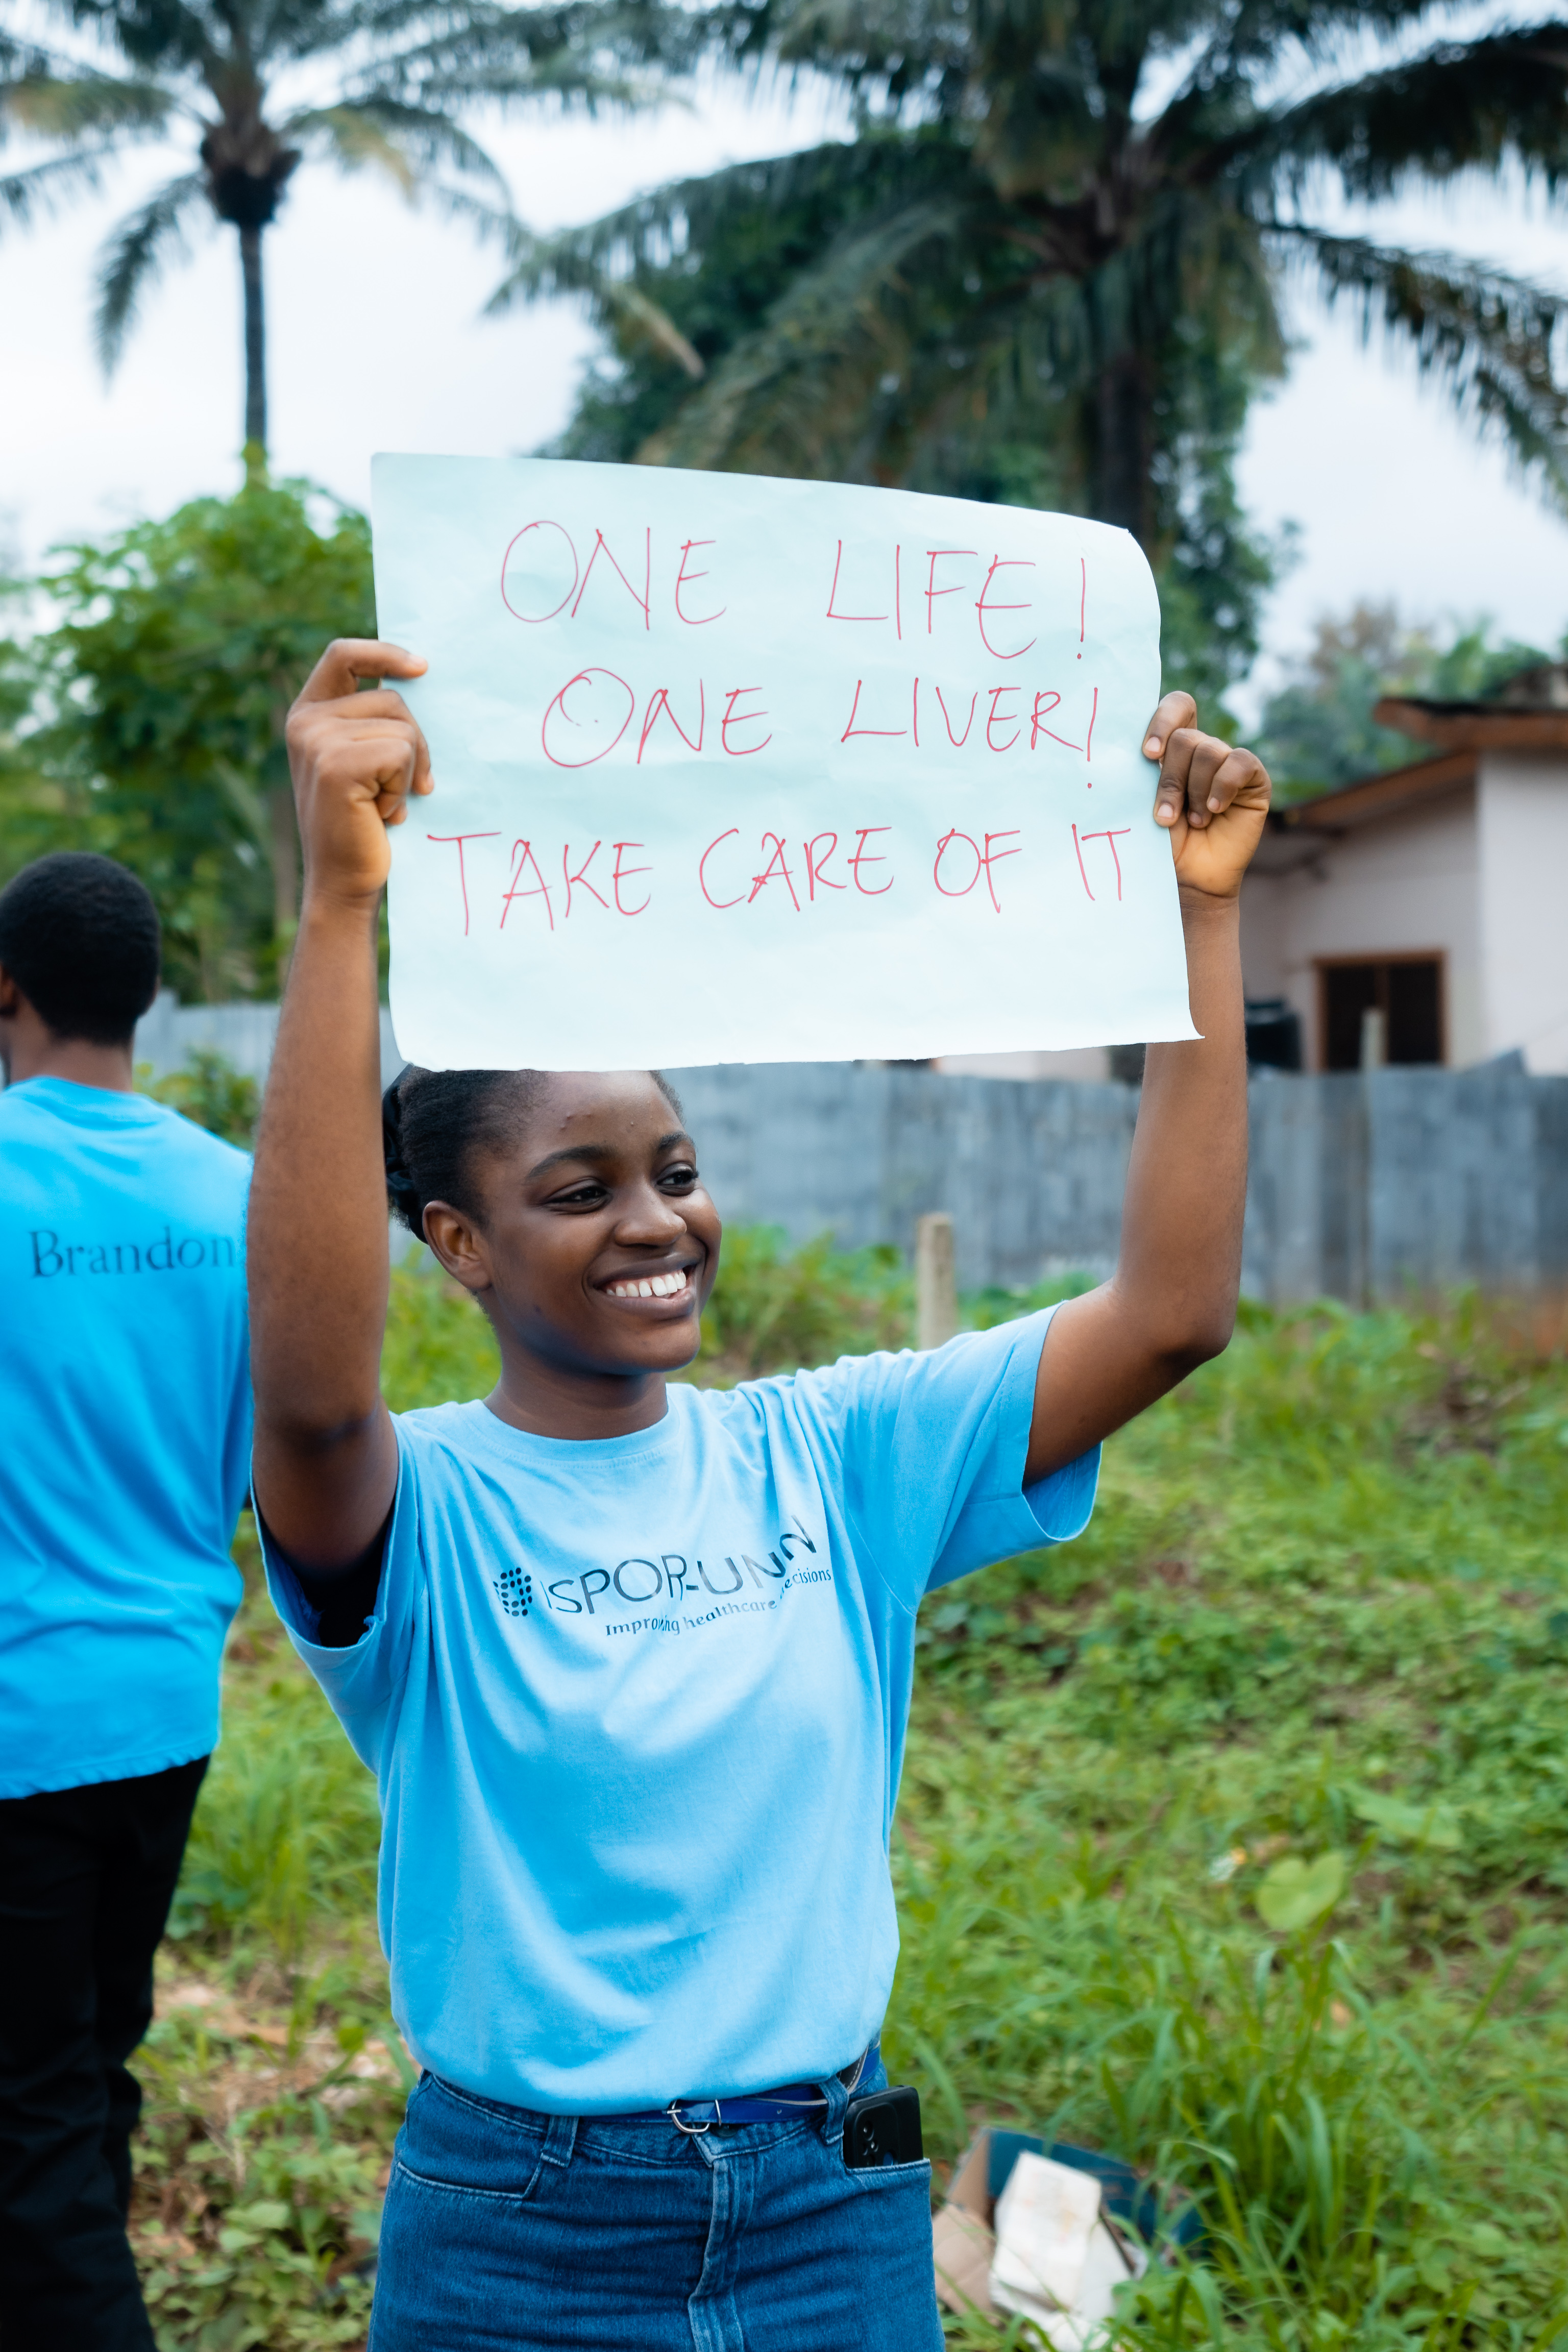 ONE LIFE!
ONE LIVER!
TAKE CARE OF IT
Brandon
ISPOR-UNN
Improving healthcare decisions